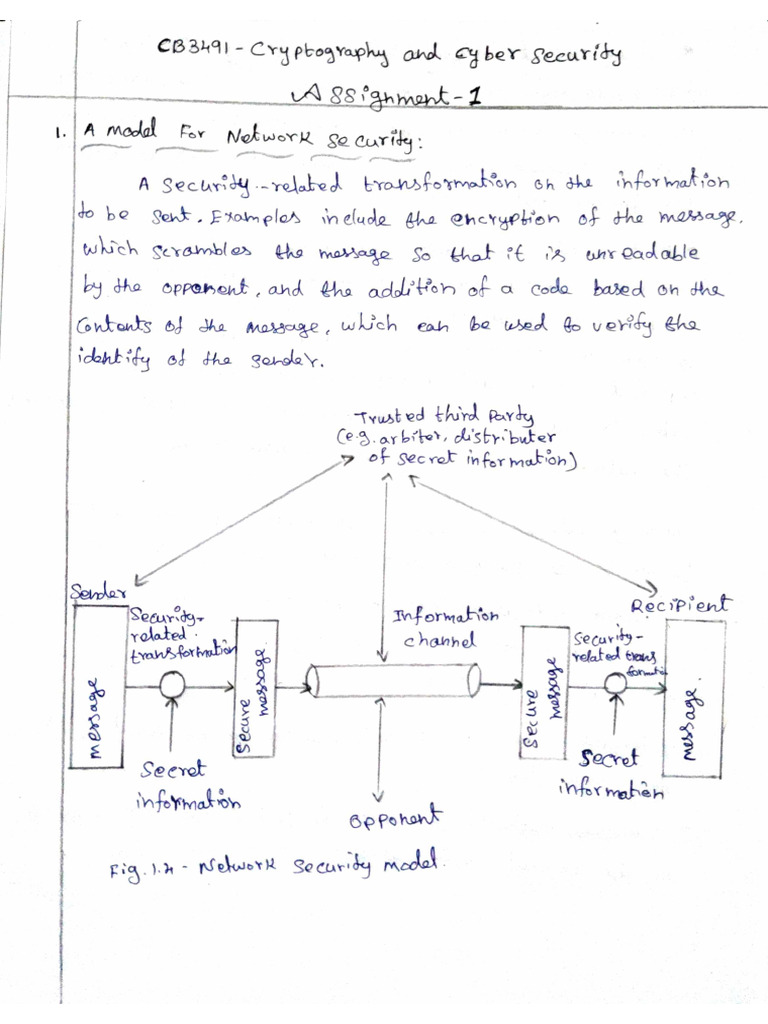 CB3491 - Cryptography and Cyber Security
Assignment - 1
1. A model For Network Security:
A Security-related transformation on the information
to be sent. Examples include the encryption of the message,
which scrambles the message so that it is unreadable
by the opponent, and the addition of a code based on the
Contents of the message, which can be used to verify the
identity of the sender.
Trusted third Party
(e.g. arbiter, distributer
of secret information)
Sender
Recipient
Security-
related
transformation
Information
channel
Security-
related trans
formation
message
Secure
message
Secure
message
message.
Secret
information
Secret
information
Opponent
Network Security model.